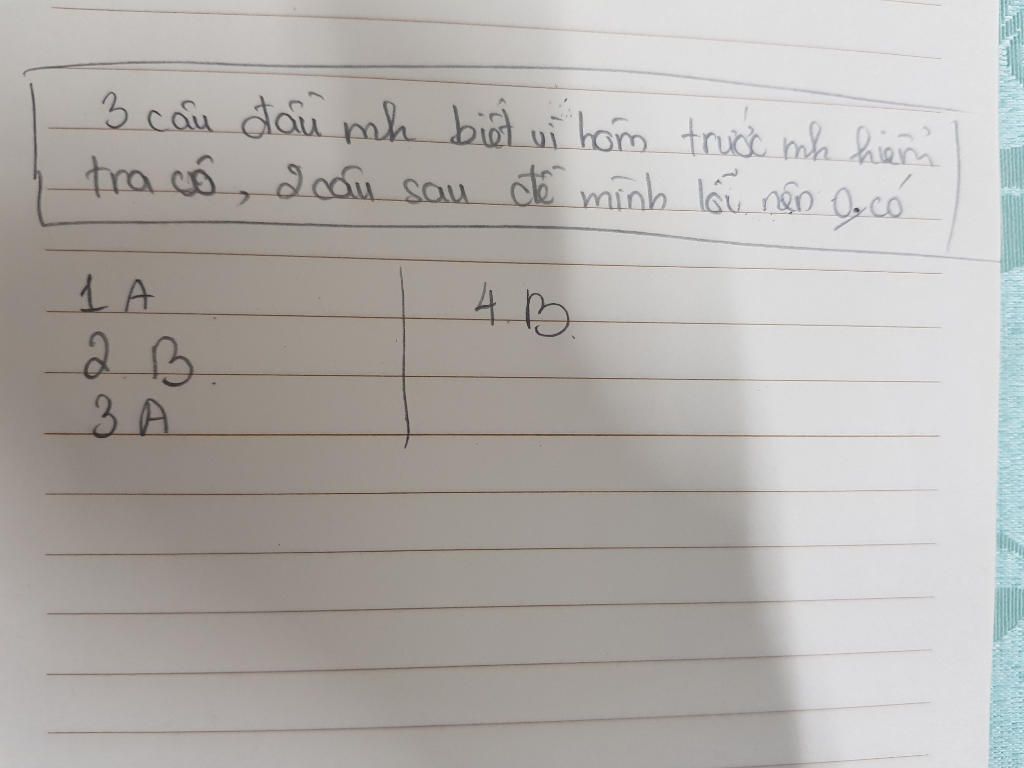 3 câu đầu mh biết vì hôm trước mh kiểm
tra có, 2 câu sau đề mình lỗi nên 0, có
1 A
2 B.
3 A
4. B.